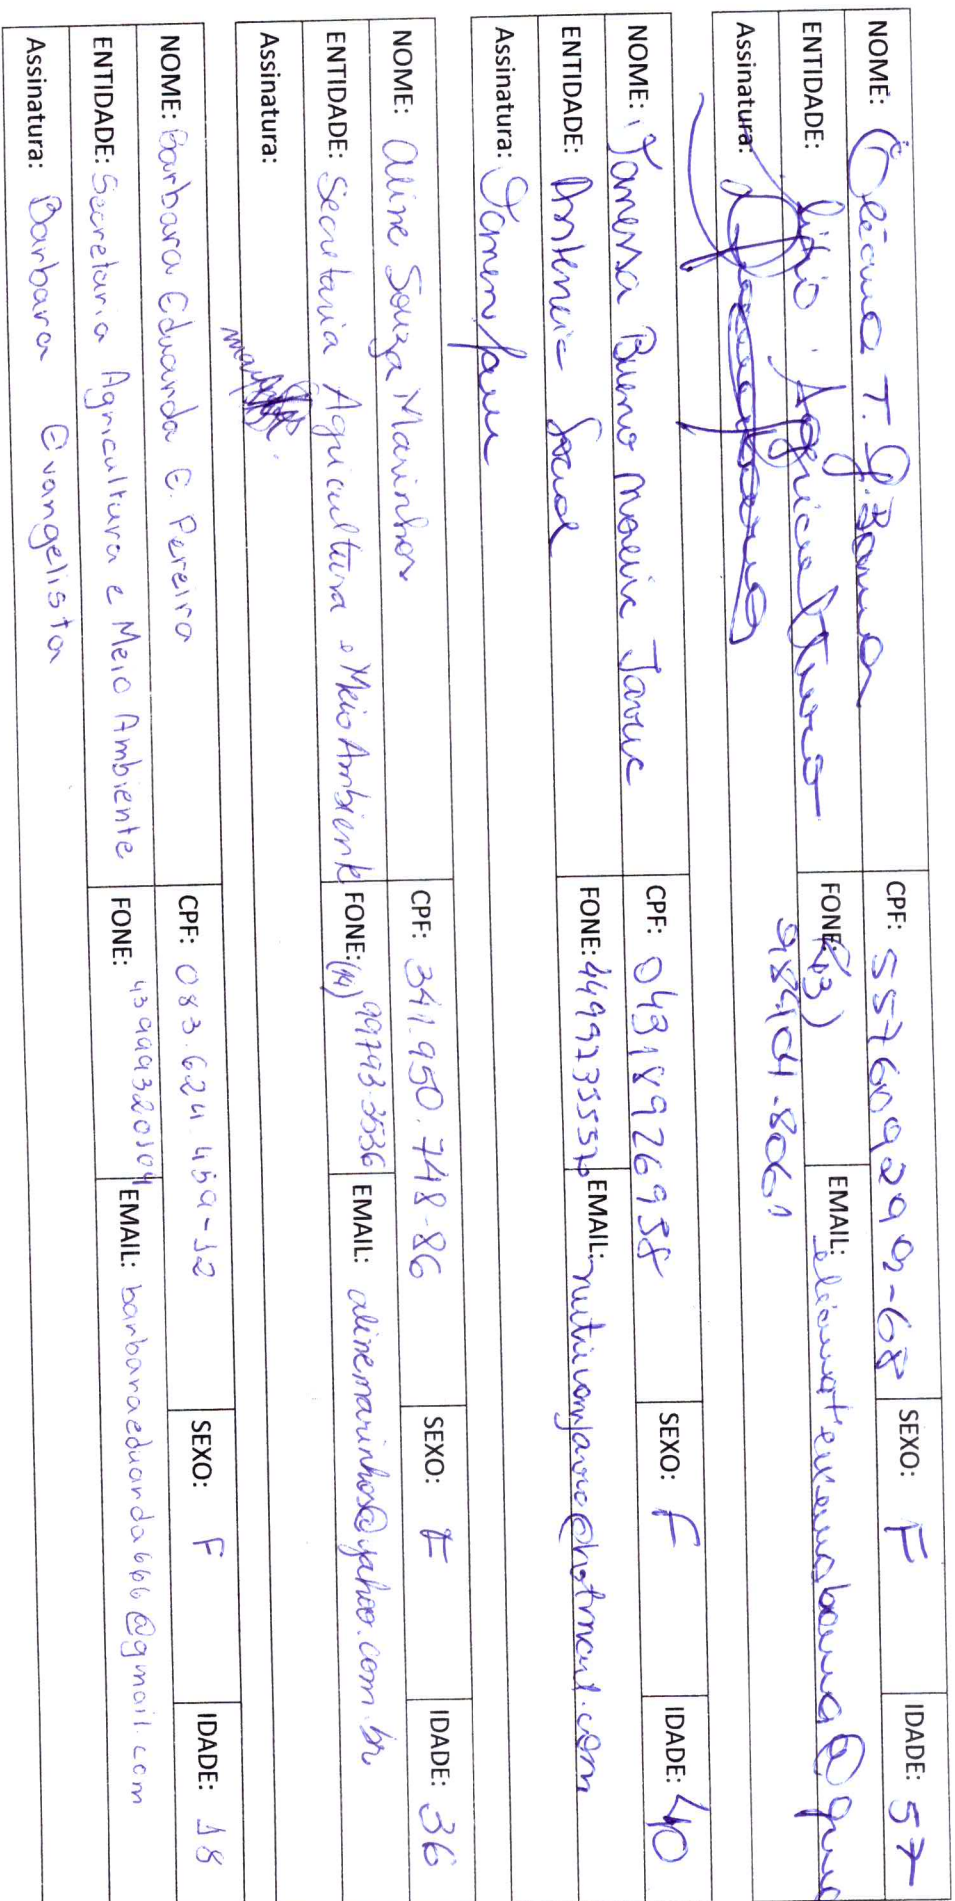 NOME: Eleana T. G. Bauna CPF: 557609299-68 SEXO: F IDADE: 57
ENTIDADE: Agricultura FONE: (43) 98404-8061 EMAIL:
Assinatura:
NOME: Vanessa Bueno Moreira Javuc CPF: 04318926958 SEXO: F IDADE: 40
ENTIDADE: Assistencia Social FONE: EMAIL:
Assinatura:
NOME: Aline Souza Marinho CPF: 341.950.748-86 SEXO: F IDADE: 36
ENTIDADE: Secretaria Agricultura e Meio Ambiente FONE: (14) 99793-3536 EMAIL: alinemarinhos@yahoo.com.br
Assinatura:
NOME: Barbara Eduarda E. Pereira CPF: 083.624.459-12 SEXO: F IDADE: 18
ENTIDADE: Secretaria Agricultura e Meio Ambiente FONE: 43999320104 EMAIL: barbaraeduarda666@gmail.com
Assinatura: Barbara Evangelista